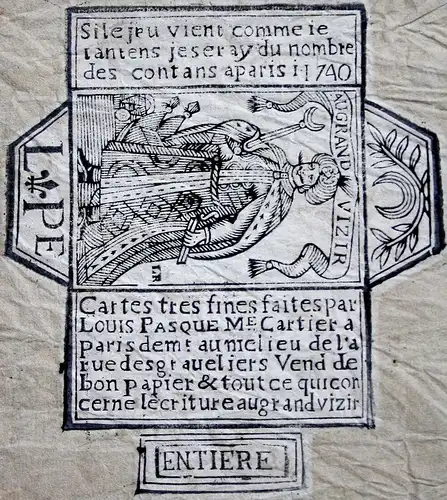 Si le jeu vient comme ie
lantens je seray du nombre
des contans a paris i 1740
AU GRAND VIZIR
L PE
GR
Cartes tres fines faites par
LOUIS PASQUE Me Cartier a
paris demt au milieu de la
rue des graveliers Vend de
bon papier & tout ce qui con
cerne lecriture au grand vizir
ENTIERE